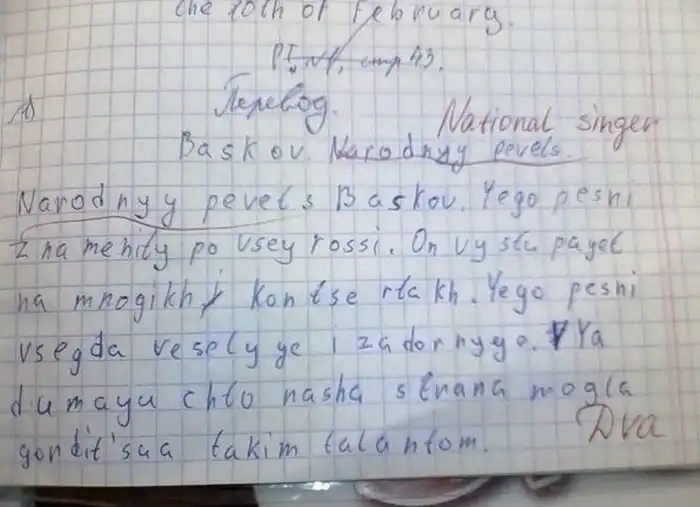 the 10th of February.
P I, №1, стр 43.
A)
Перевод.
National singer
Baskov. Narodnyy pevets.
Narodnyy pevets Baskov. Yego pesni
znamenity po vsey rossi. On vystupayet
na mnogikh kontsertakh. Yego pesni
vsegda veselyye i zadornyye. Ya
dumayu chto nasha strana mogla
gordit'saa takim talantom.
Dva